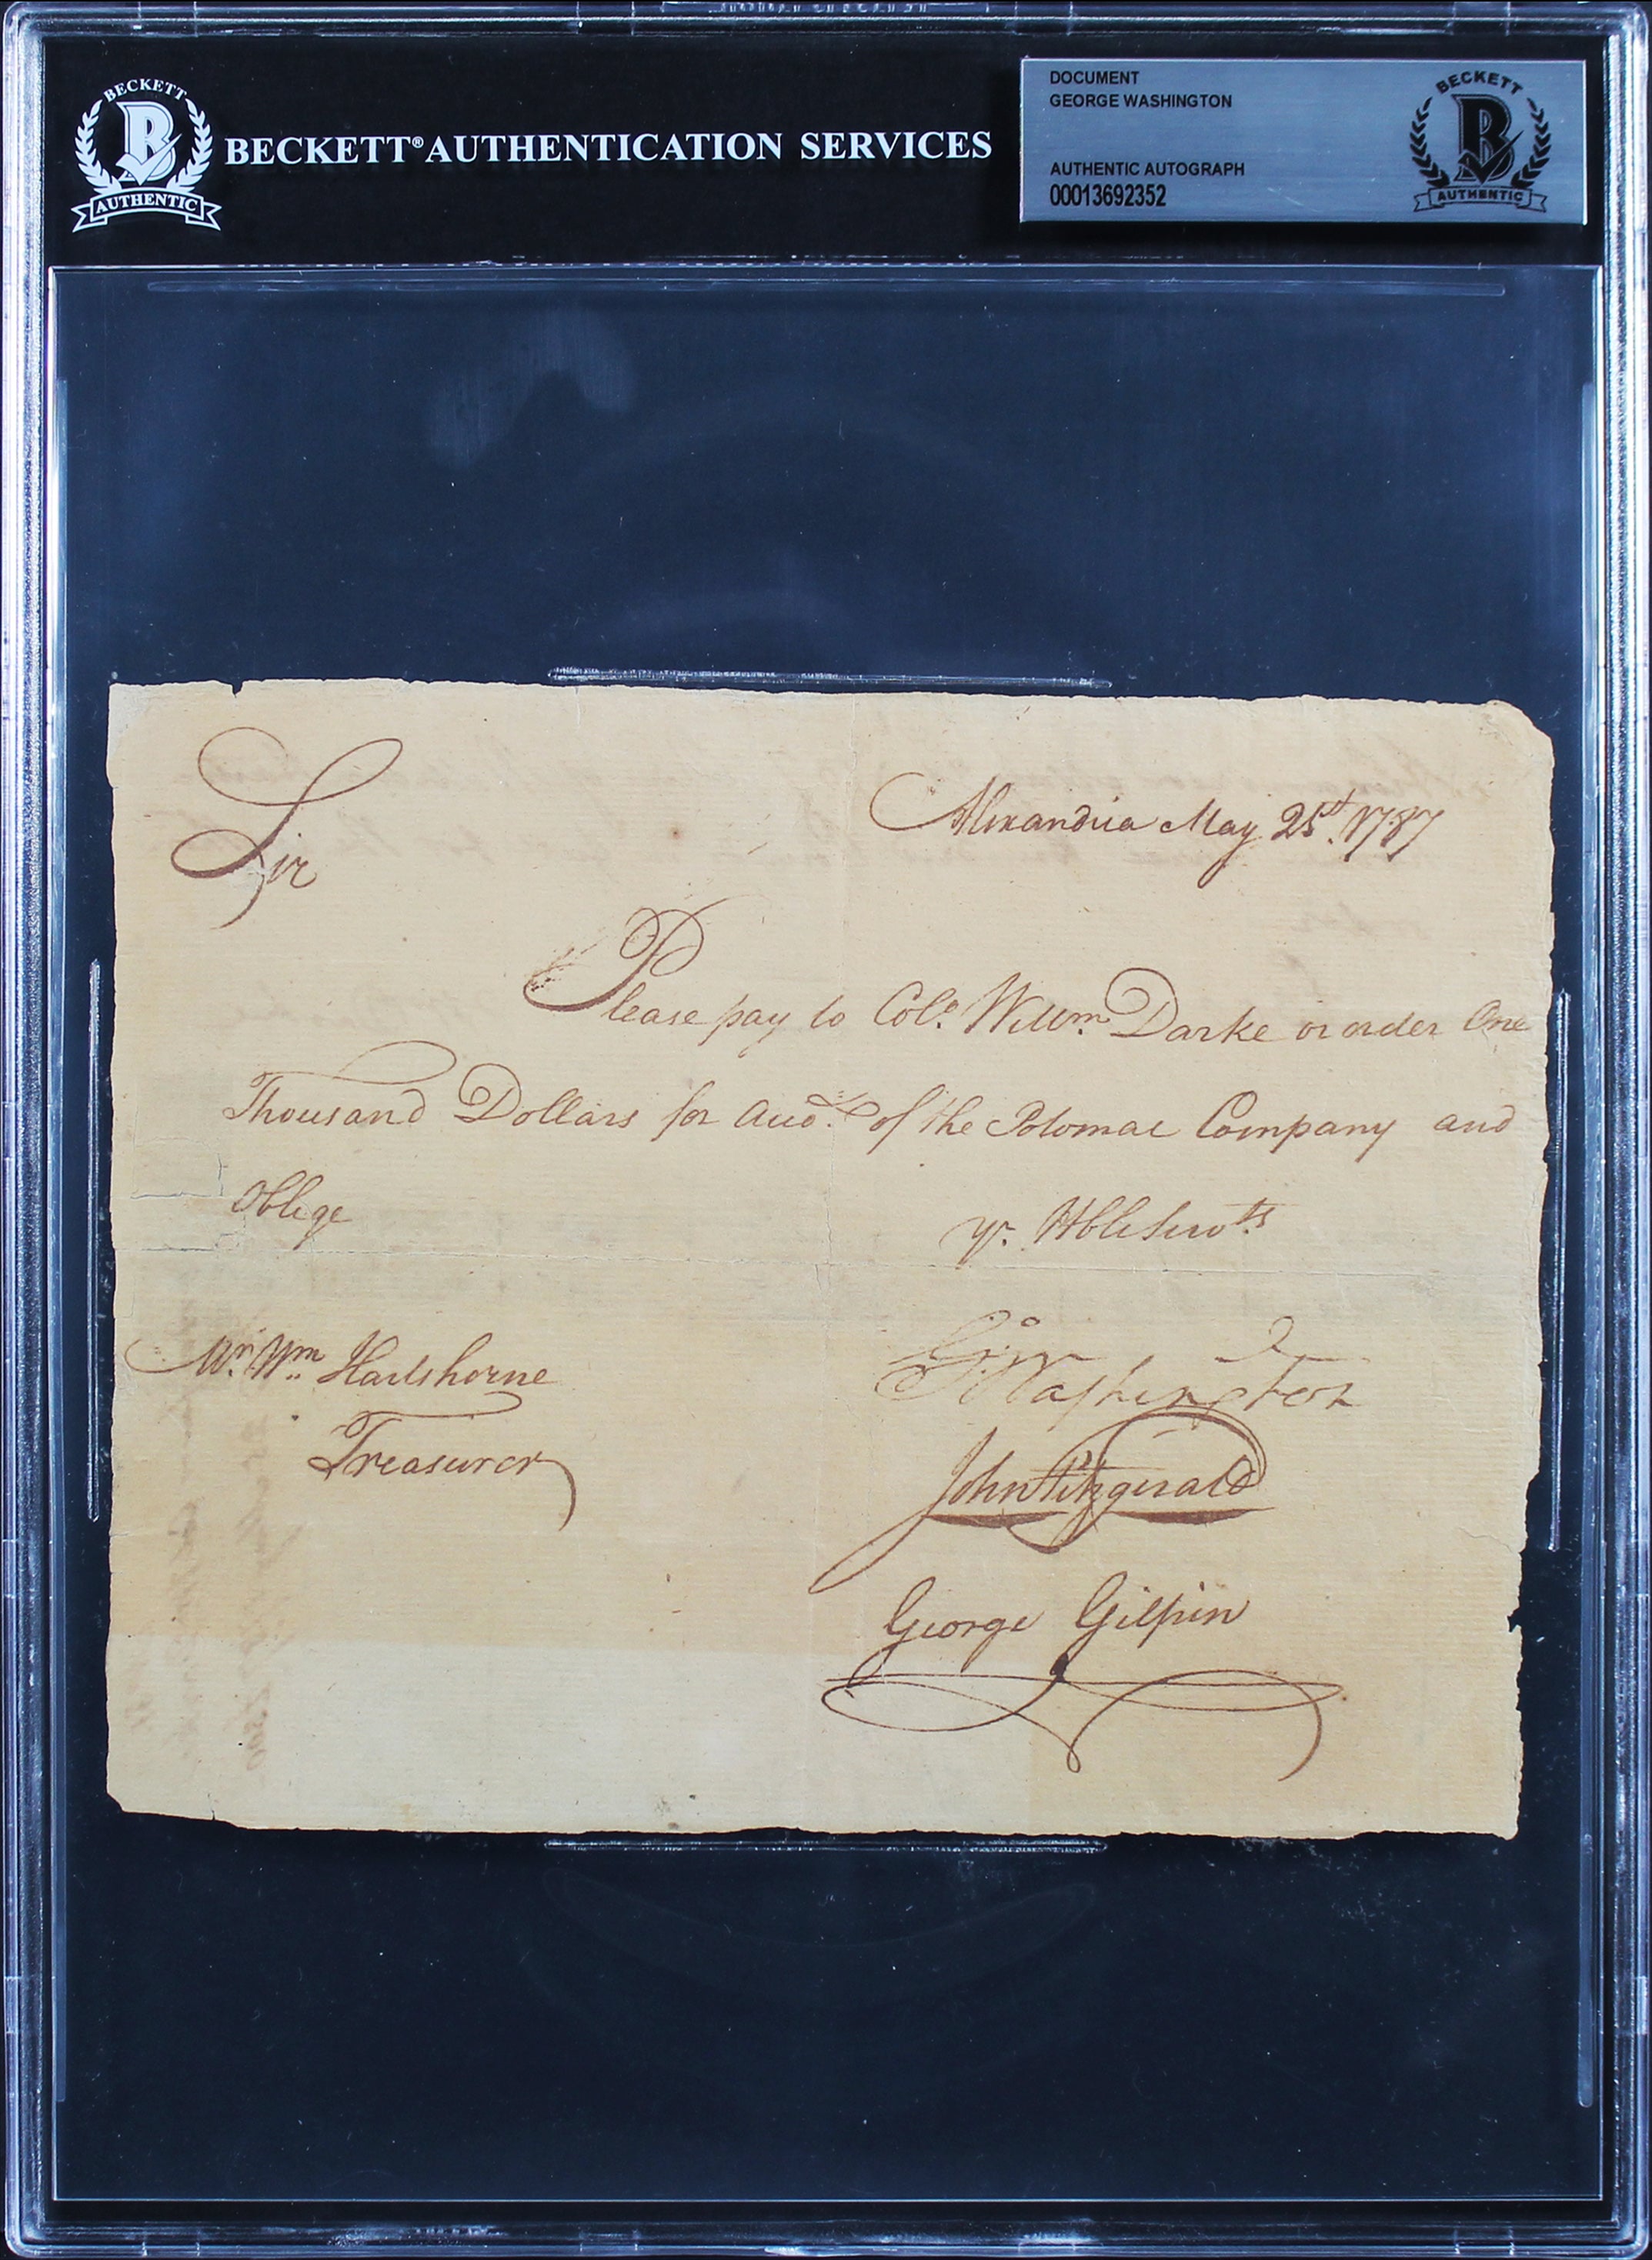 BECKETT
B
AUTHENTIC
BECKETT® AUTHENTICATION SERVICES
DOCUMENT
GEORGE WASHINGTON
AUTHENTIC AUTOGRAPH
00013692352
BECKETT
B
AUTHENTIC
Sir
Alexandria May 25th. 1787
Please pay to Colo. Willm. Darke or order One
Thousand Dollars for Acco.t of the Potomac Company and
Oblige
yr. Hble Servts
Mr. Wm. Hartshorne
Treasurer
Go: Washington
John Fitzgerald
George Gilpin